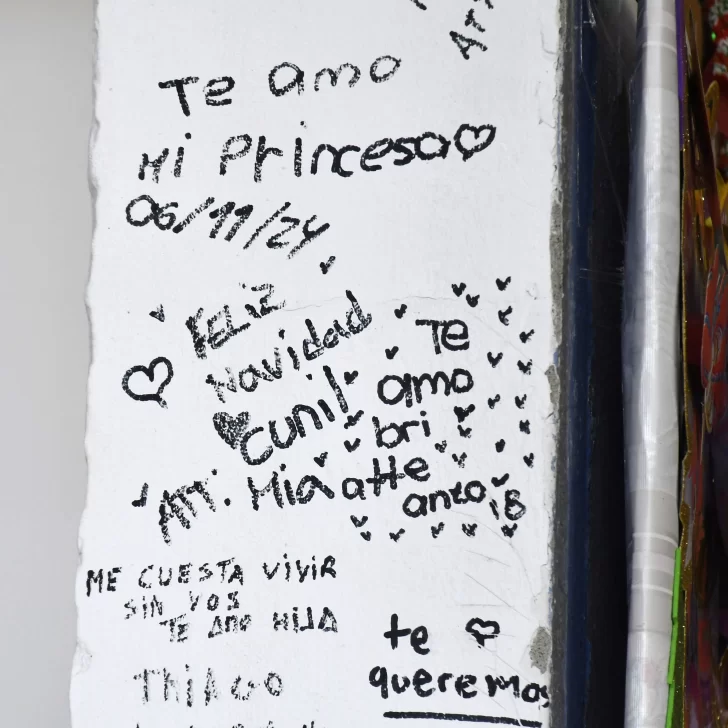 Te amo
Mi Princesa
06/11/24
FELiZ
Navidad
Cunil
ATT: Mia
Te
amo
bri
atte
anto
ME CUESTA VIVIR
SIN VOS
TE AMO HIJA
THIAGO
te
queremos